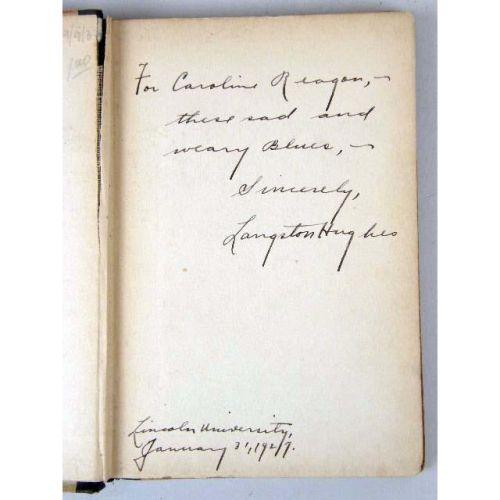 For Caroline Reagon,-
these sad and
weary Blues,-
Sincerely,
Langston Hughes
Lincoln University,
January 31, 1929.